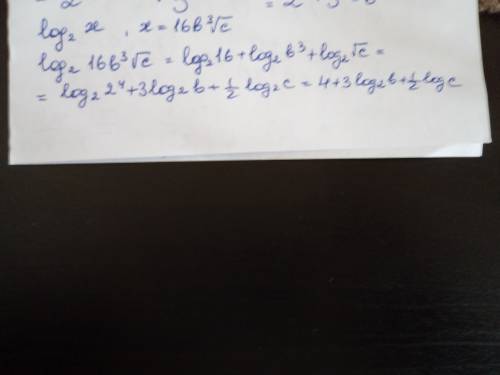 log₂ x , x = 16b³√c
log₂ 16b³√c = log₂16 + log₂b³ + log₂√c =
= log₂ 2⁴ + 3log₂b + ½ log₂c = 4 + 3log₂b + ½ log c